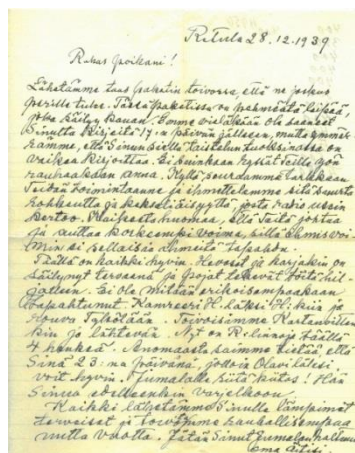 Ritula 28.12.1939
Rakas Poikani!
Lähetämme taas paketin toivossa, että ne joskus
perille tulee. Tässä paketissa on pehmeätä leipää,
joka säilyy kauan. Emme vieläkään ole saaneet
Sinulta kirjeitä 17:n päivän jälkeen, mutta ymmär-
rämme, että Sinun siellä taistelun tuoksinassa on
vaikea kirjoittaa. Ei suinkaan ryssät teille yön
rauhaakaan anna. Kyllä seuraamme tarkkaan
Teidän toimintaanne ja ihmettelemme sitä suurta
rohkeutta ja, josta radio usein
kertoo. huomaa, että Teitä johtaa
ja auttaa korkeampi voima, sillä ihmisvoi-
min ei sellaisia ihmeitä tapahdu.
Täällä on kaikki hyvin. Hevoset ja karjakin on
säilynyt terveenä ja pojat tekevät töitä hil-
jalleen. Ei ole mitään erikoisempaakaan
tapahtunut. Kamreeri H. läksi H:kiin ja
Rouva. Toivoisimme
kin jo lähtevän. Nyt on täällä
4 henkeä. saimme tietää, että
Sinä 23:na päivänä, jolloin
voit hyvin. Jumalalle siitä kiitos! Hän
Sinua edelleenkin varjelkoon.
Kaikki lähetämme Sinulle lämpimät
terveiset ja toivomme rauhallisempaa
uutta vuotta. Jätän Sinut Jumalan haltuun
Oma Äitisi.